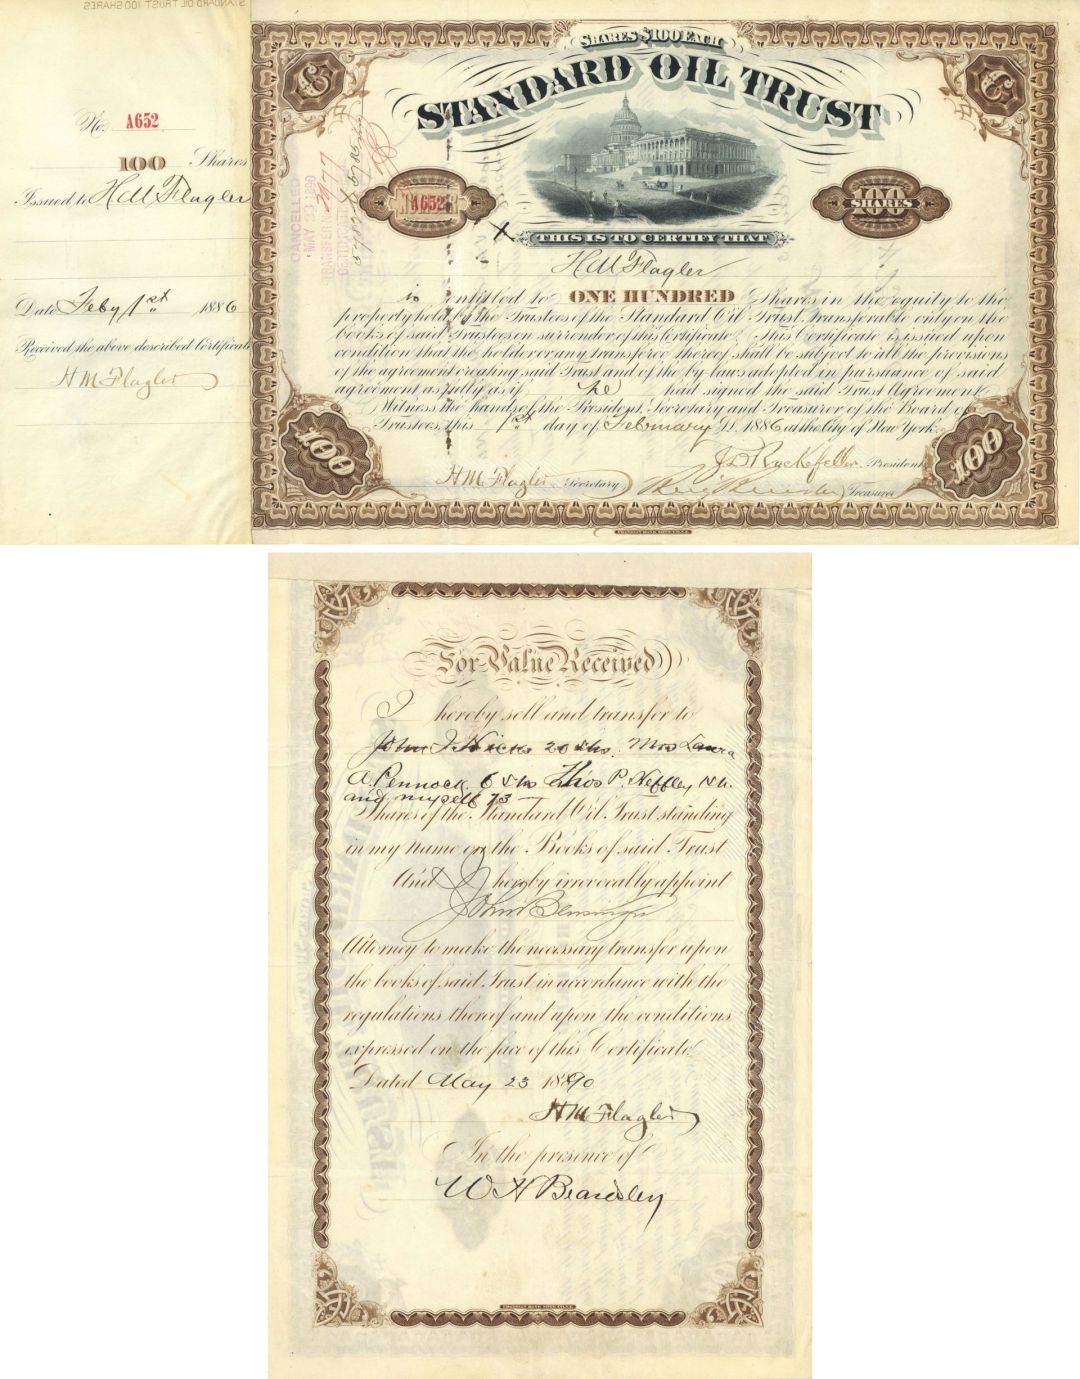 STANDARD OIL TRUST 100 SHARES
No. A652
100 Shares
Issued to H M Flagler
Date Feby 1st 1886
Received the above described Certificate
H M Flagler
SHARES $100 EACH
STANDARD OIL TRUST
A652
100
SHARES
CANCELLED
MAY
1890
TRANSFER
THIS IS TO CERTIFY THAT
H M Flagler
is entitled to ONE HUNDRED Shares in the equity to the
property held by the Trustees of the Standard Oil Trust, Transferable only on the
books of said Trustees on surrender of this Certificate. This Certificate is issued upon
condition that the holder or any transferee thereof shall be subject to all the provisions
of the agreement creating said Trust and of the by-laws adopted in pursuance of said
agreement as fully as if he had signed the said Trust Agreement.
Witness the hands of the President, Secretary and Treasurer of the Board of
Trustees, this 1st day of February A.D. 1886 at the City of New York.
J D Rockefeller President
H M Flagler Secretary
Treasurer
100
100
FRANKLIN BANK NOTE CO. N.Y.
For Value Received
I hereby sell and transfer to
John J Hicks 20 shs. Mrs Laura
A. Pennock 6 shs Thos P. Heffley 1 sh.
and myself 73
Shares of the Standard Oil Trust standing
in my name on the Books of said Trust
And I hereby irrevocably appoint
John Bensinger
Attorney to make the necessary transfer upon
the books of said Trust in accordance with the
regulations thereof and upon the conditions
expressed on the face of this Certificate.
Dated May 23 1890
H M Flagler
In the presence of
W H Beardsley
FRANKLIN BANK NOTE CO. N.Y.